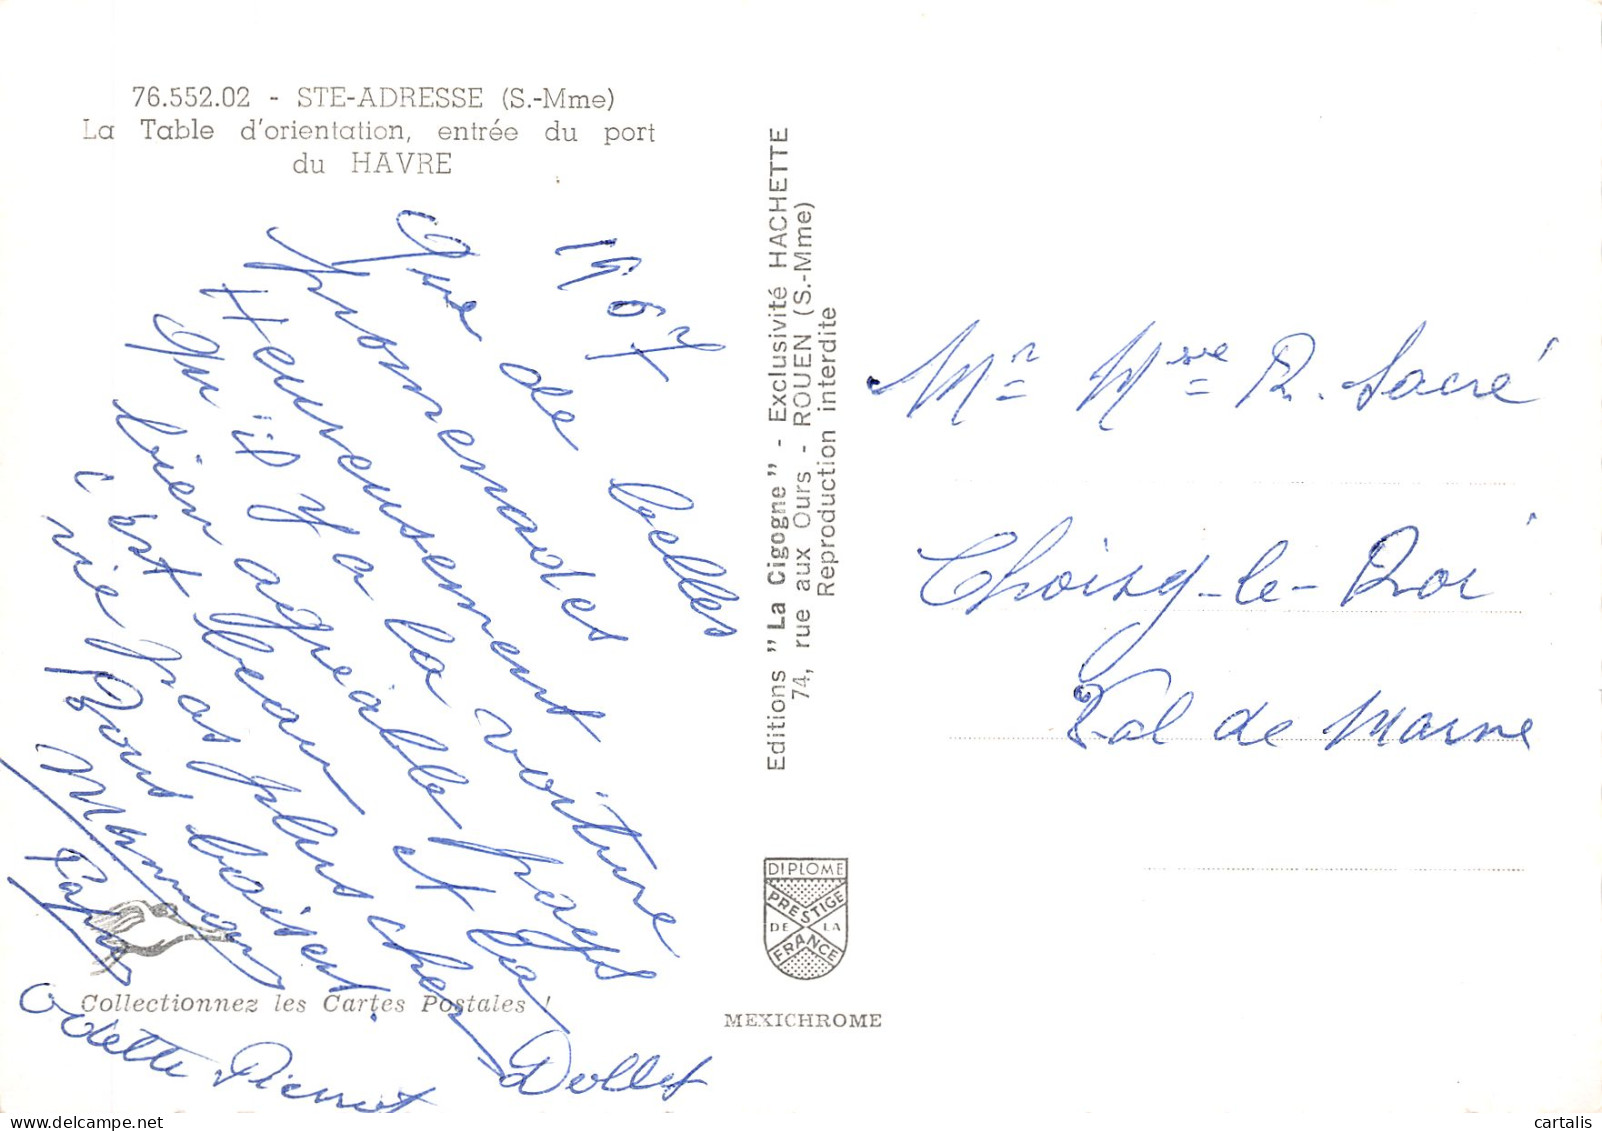 76.552.02 - STE-ADRESSE (S.-Mme)
La Table d'orientation, entrée du port
du HAVRE
1967
Que de belles
promenades
Heureusement
qu'il y a la voiture
bien agréable pays
c'est beau et la
vie pas plus cher
Bons baisers
Maman
Papa
Odette Pierrot Dollet
Collectionnez les Cartes Postales !
Editions "La Cigogne" - Exclusivité HACHETTE
74, rue aux Ours - ROUEN (S.-Mme)
Reproduction interdite
DIPLOME
PRESTIGE
DE LA
FRANCE
MEXICHROME
Mr Mme R. Sacré
Choisy-le-Roi
Val de Marne
delcampe.net
cartalis